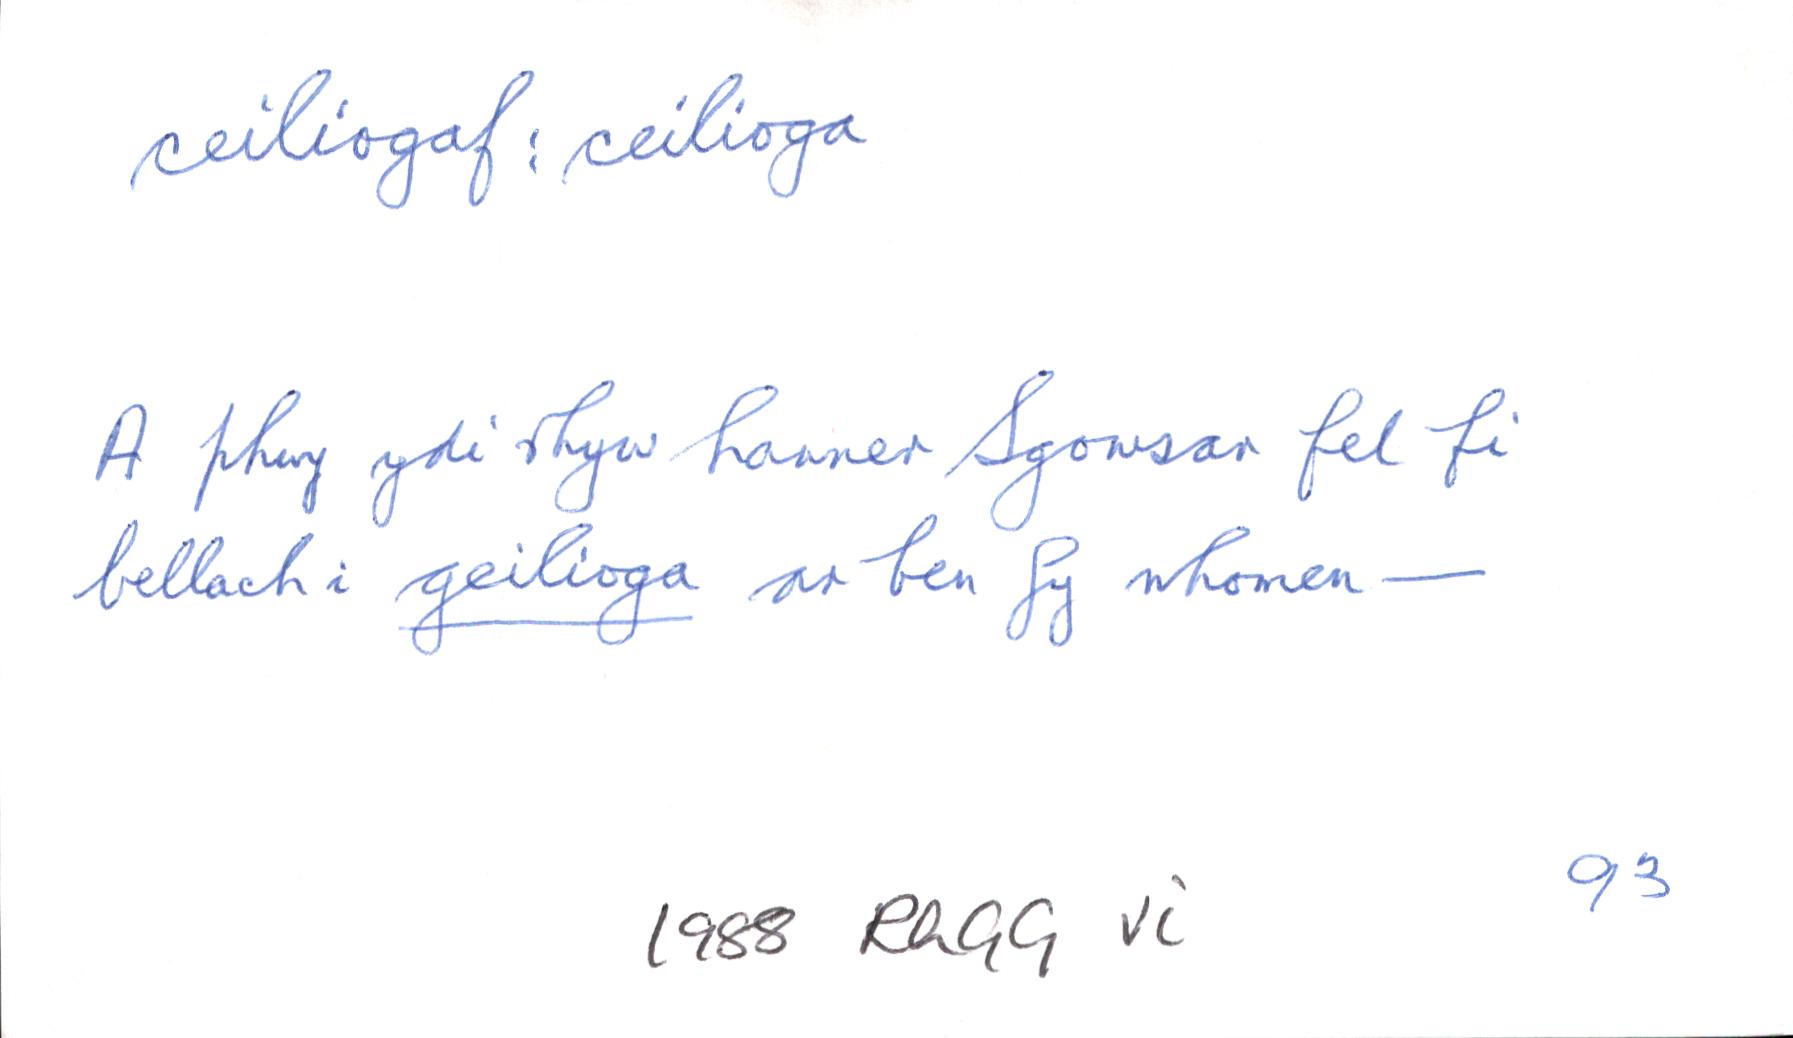 ceiliogaf: ceilioga
A phwy ydi rhyw hanner Sgowsar fel fi
bellach i geilioga ar ben fy nhomen —
93
1988 RhGG vi